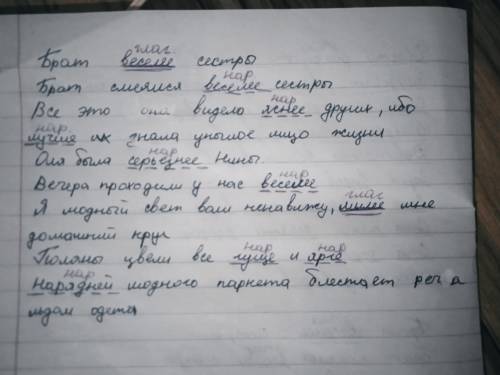 глаг.
Брат веселее сестры
нар
Брат смеялся веселее сестры
нар
Все это она видела яснее других, ибо
нар
лучше их знала унылое лицо жизни
нар
Оля была серьезнее Нины
нар
Вечера проходили у нас веселее
глаг
Я модный свет вам ненавижу, милее мне
домашний круг
нар нар
Поляны цвели все гуще и ярче
нар
Нарядней модного паркета блестает реч а
льдом одета